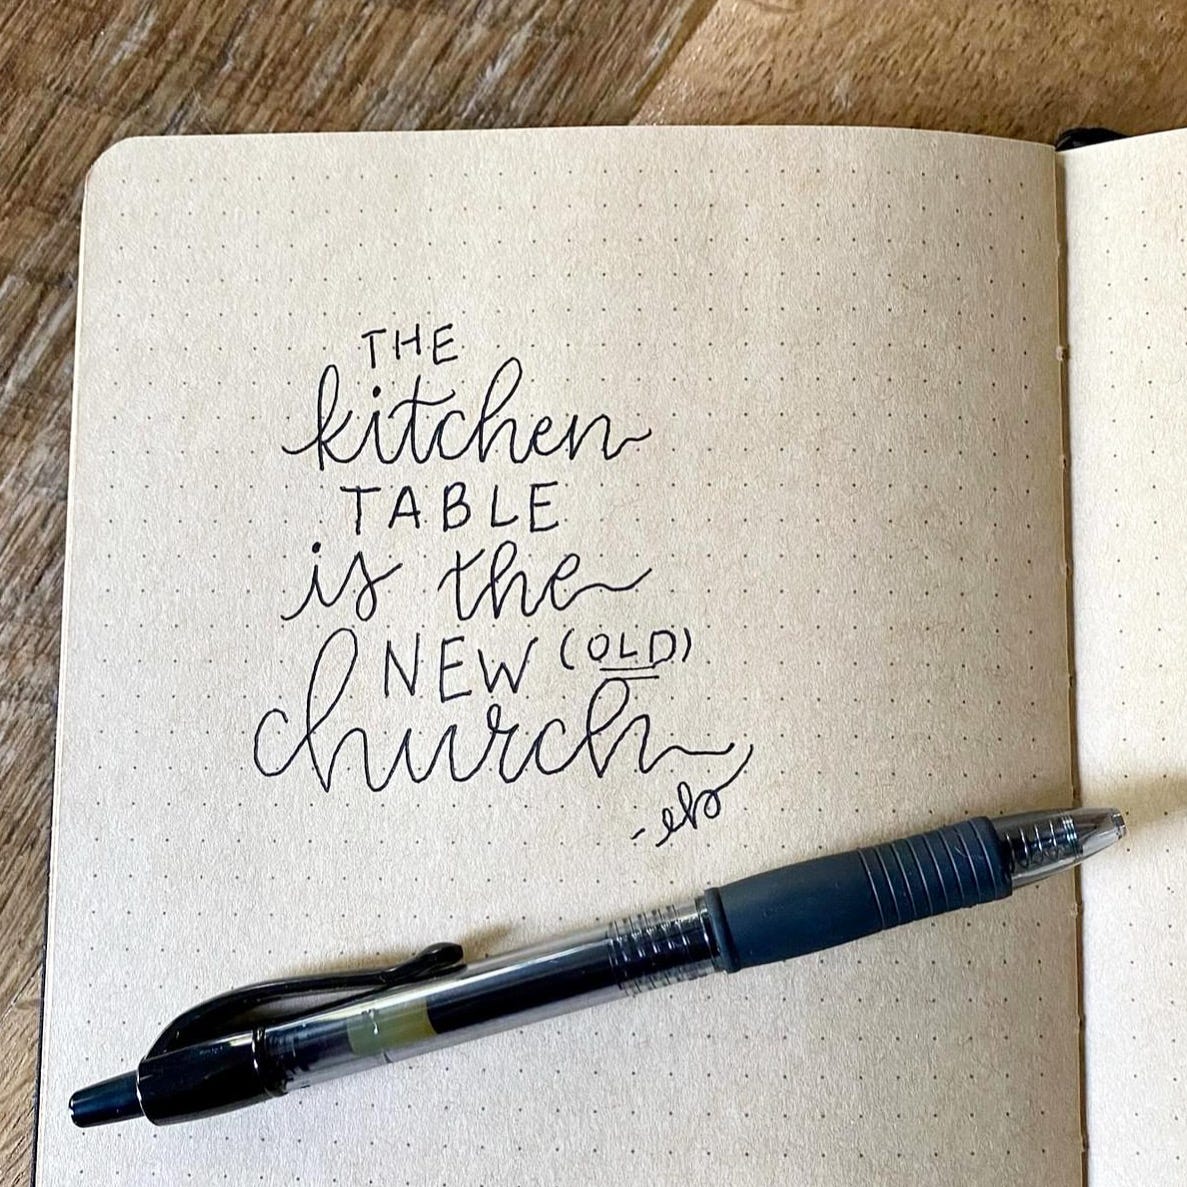 THE
kitchen
TABLE
is the
NEW (OLD)
church
-elo